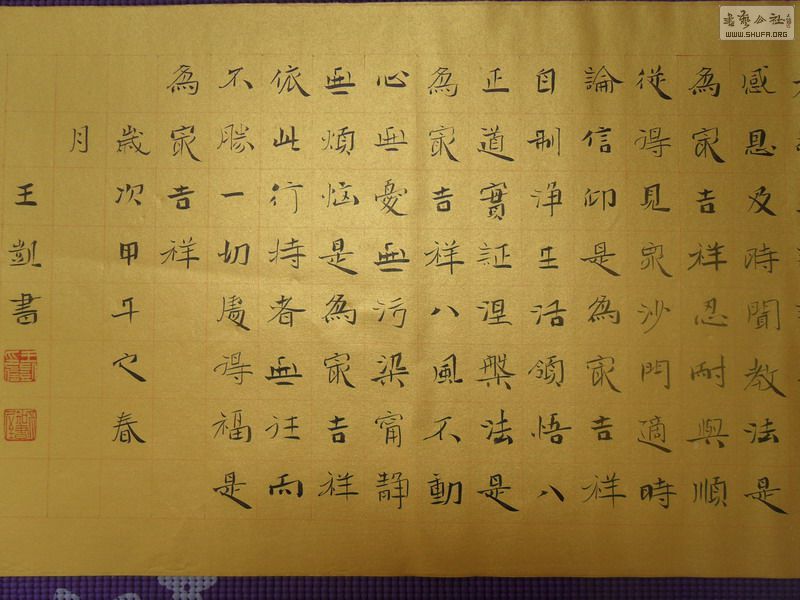 感恩及時聞教法是
為家吉祥忍耐與順
從得見眾沙門適時
論信仰是為家吉祥
自制淨生活領悟八
正道實証涅槃法是
為家吉祥八風不動
心無憂無污染甯静
無煩惱是為家吉祥
依此行持者無往而
不勝一切處得福是
為家吉祥
歲次甲午之春
月
王凱書
書藝公社
WWW.SHUFA.ORG